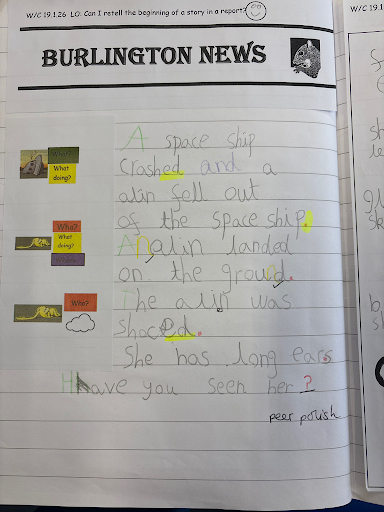 W/C 19.1.26 LO: Can I retell the beginning of a story in a report?
W/C 19.1
BURLINGTON NEWS
A space ship
Where?
What doing?
crashed and a
alin fell out
of the space ship.
Who?
What doing?
An alin landed
on the ground.
Who?
The alin was
shoced.
She has long ears.
Have you seen her?
peer polish